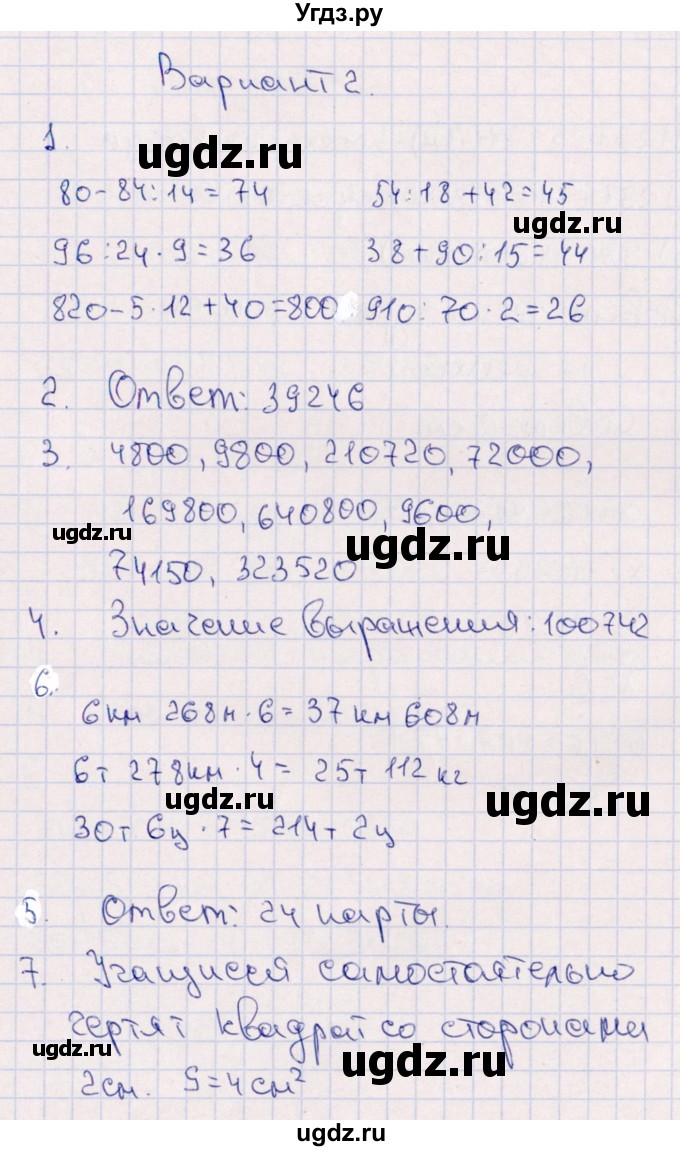 Угдз.ру
Вариант 2.
1.
ugdz.ru
80-84:14=74 54:18+42=45
ugdz.ru
96:24·9=36 38+90:15=44
820-5·12+40=800 910:70·2=26
2. Ответ: 39246
3. 4800, 9800, 210720, 72000,
169800, 640800, 9600,
ugdz.ru ugdz.ru
74150, 323520
4. Значение выражения: 100742
6.
6км 268м·6=37км 608м
6т 278км·4=25т 112кг
ugdz.ru ugdz.ru
30т 6ц·7=214т 2ц
5. Ответ: 24 парты.
7. Учащиеся самостоятельно
чертят квадрат со сторонами
ugdz.ru ugdz.ru
2см. S=4см²
ugdz.ru